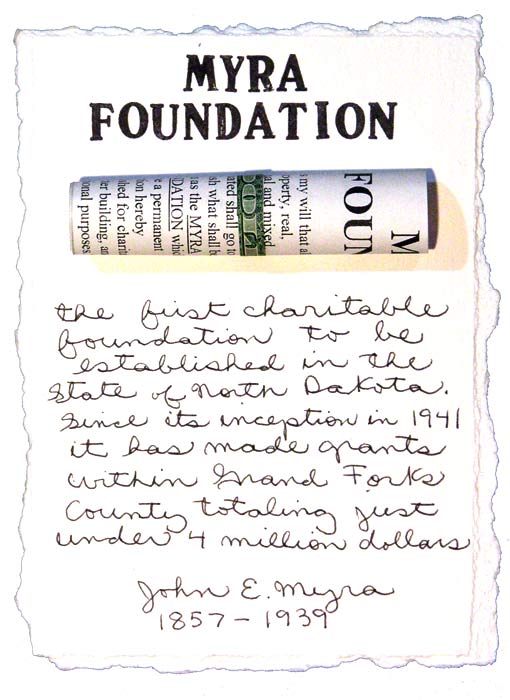 MYRA
FOUNDATION
M
FOUN
s my will that a
operty, real,
al and mixed
ated shall go to
sh what shall b
as the MYRA
DATION whic
e a permanent
ion hereby
shed for charit
er building, a
onal purposes
the first charitable
foundation to be
established in the
State of North Dakota.
Since its inception in 1941
it has made grants
within Grand Forks
County totaling just
under 4 million dollars
John E. Myra
1857-1939